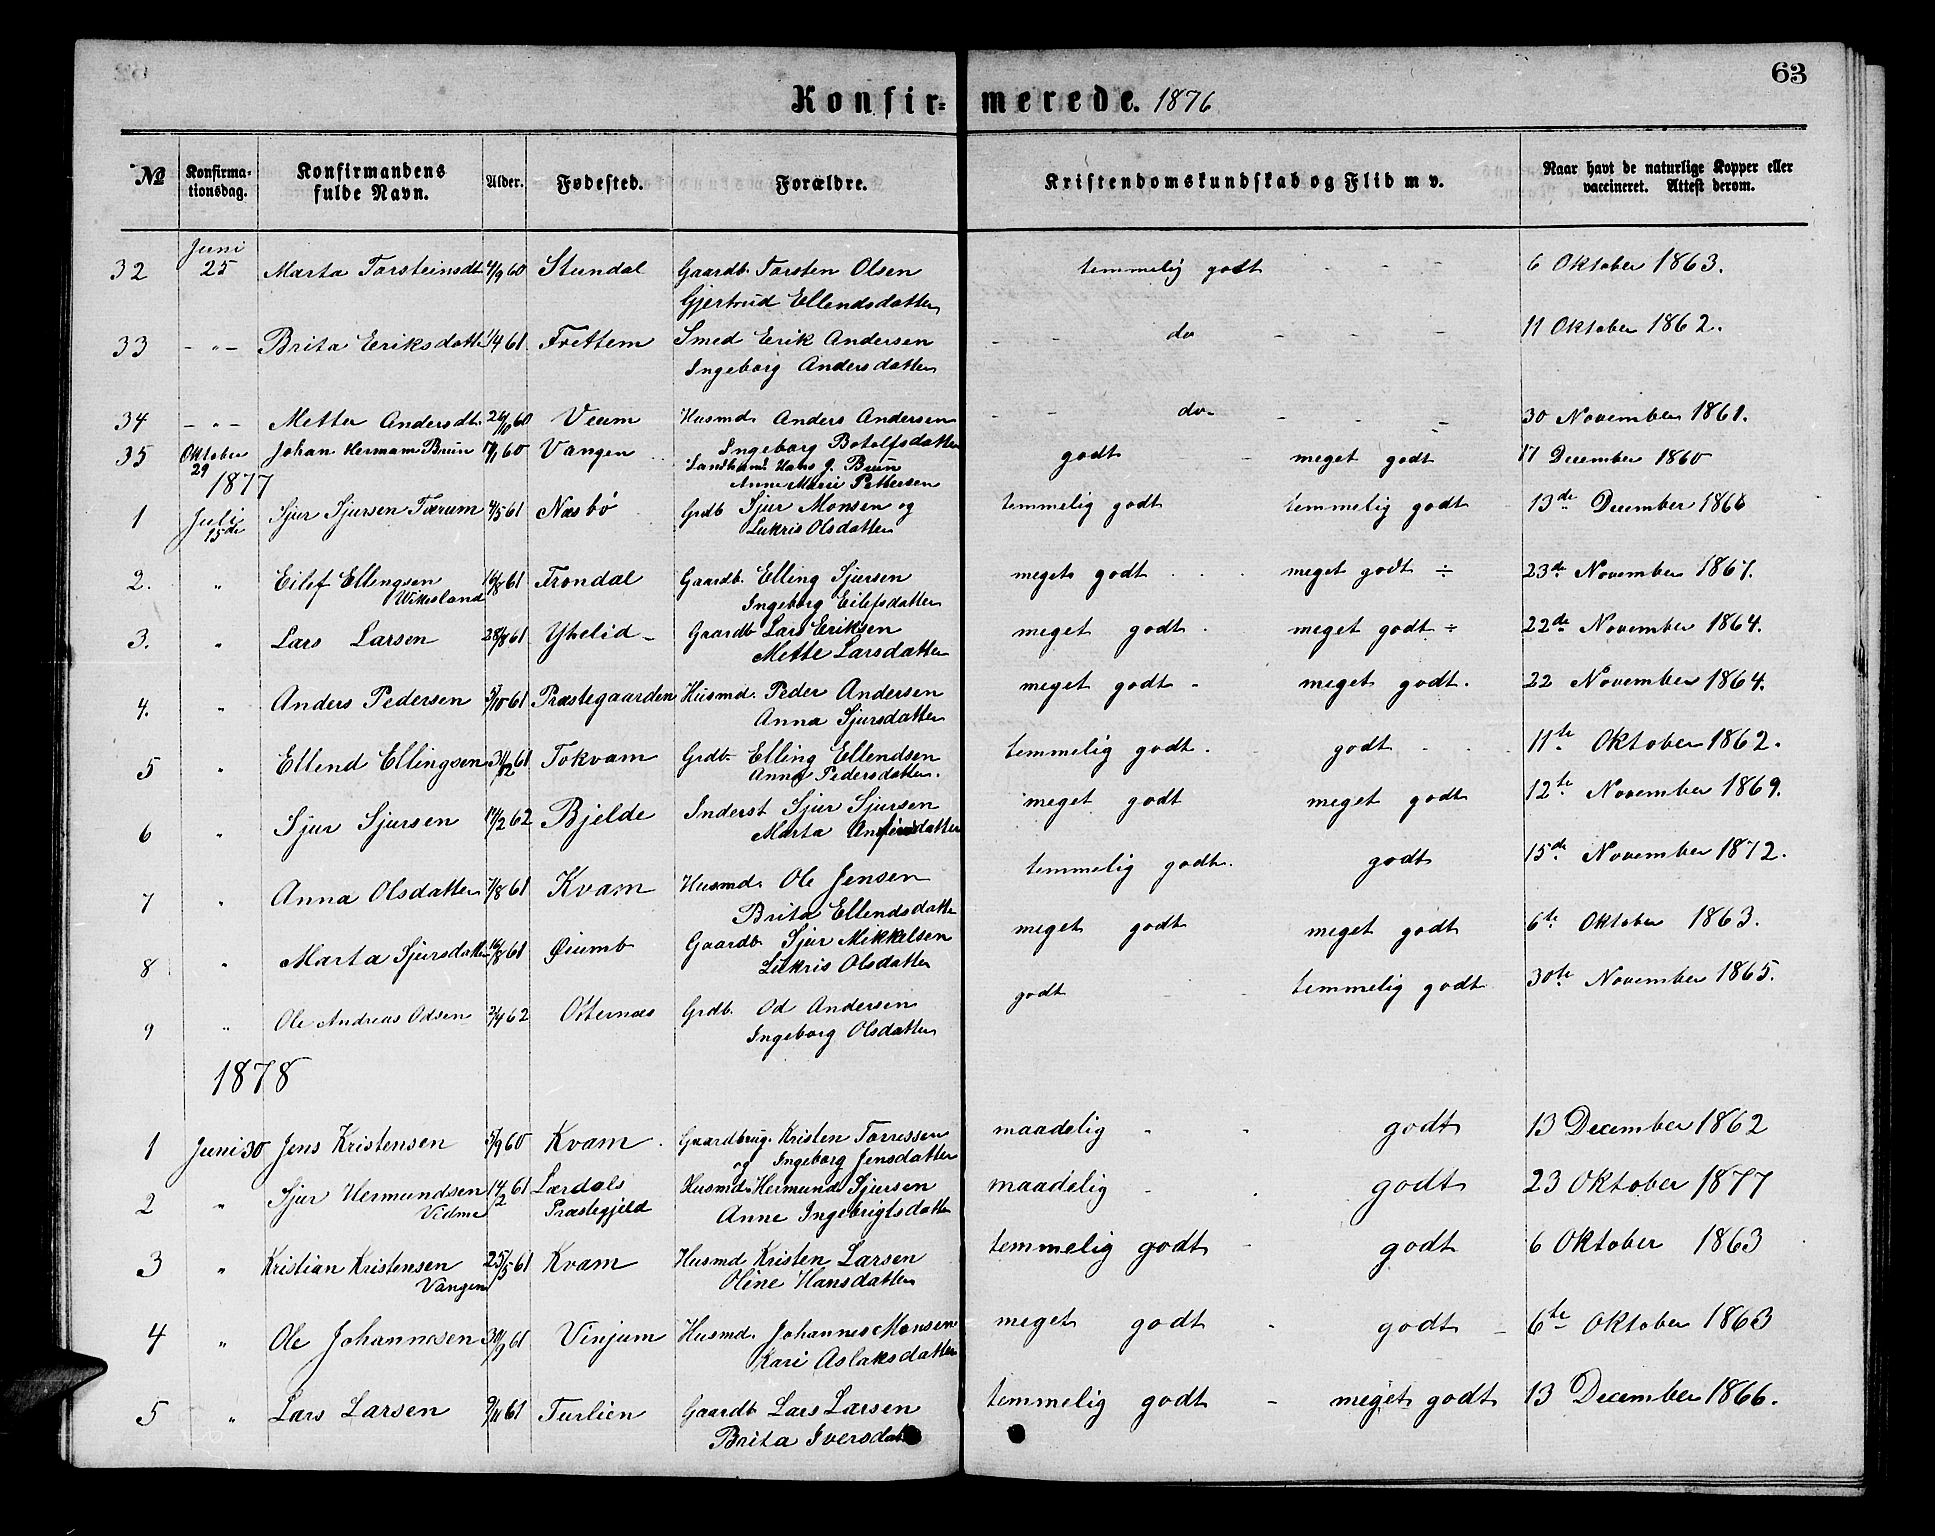 63
Konfir=merede. 1876
No Konfirma-tionsdag. Konfirmandens fulde Navn. Alder. Fødested. Forældre. Kristendomskundskab og Flid m v. Naar havt de naturlige Kopper eller vaccineret. Attest derom.
32 Juni 25 Marta Torsteinsdt. 4/9 60 Stundal Gaardb. Torsten Olsen temmelig godt - - - 6 Oktober 1863.
Gjertrud Ellendsdatter
33 - " - Brita Eriksdatter 1/4 61 Frettem Smed Erik Andersen - - do - - - 11 Oktober 1862.
Ingeborg Andersdatter
34 - " - Mette Andersdt. 26/10 60 Veum Husmd. Anders Andersen - - do - - - 30 November 1861.
Ingeborg Botolfsdatter
35 Oktober 29 Johan Herman Brun 60 Vangen Hans J. Brun godt - - meget godt 17 December 1860
Anne Marie Pettersen
1877
1 Juli 15de Sjur Sjursen Færum 4/5 61 Næsbø Grdb Sjur Monsen og temmelig godt temmelig godt - 13de December 1866
Lukris Olsdatter
2. " Eilef Ellingsen 16/8 61 Trondal Gaardb. Elling Sjursen meget godt . . . meget godt ÷ 23de November 1861.
Wikesland Ingeborg Eilefsdatter
3. " Lars Larsen 28/8 61 Ytrelid - Gaardb Lars Eriksen meget godt . meget godt ÷ 22de November 1864.
Mette Larsdatter
4. " Anders Pedersen 5/10 61 Præstegaarden Husmd. Peder Andersen meget godt - meget godt. 22 November 1864.
Anna Sjursdatter
5 " Ellend Ellingsen 31/12 61 Tokvam Grdb. Elling Ellendsen temmelig godt . godt . . . 11te Oktober 1862.
Anna Pedersdatter.
6 " Sjur Sjursen 14/2 62 Bjelde Inderst Sjur Sjursen meget godt meget godt 12te November 1869.
Marta Anfinsdatter
7 " Anna Olsdatter 7/8 61 Kvam Husmd. Ole Jensen temmelig godt. godt 15de November 1872.
Brita Ellendsdatter
8 " Marta Sjursdatter 16/8 61 Øiumb Gaardb Sjur Mikkelsen meget godt meget godt 6te Oktober 1863.
Lukris Olsdatter
9 " Ole Andreas Odsen 2/4 62 Otternæs Grdb. Od Andersen godt - - temmelig godt 30te November 1865.
Ingeborg Olsdatter
1878
1 Juni 30 Jens Kristensen 5/9 60 Kvam . Gaardbrug. Kristen Torressen maadelig - - godt 13 December 1862
og Ingeborg Jensdatter
2 " Sjur Hermundsen 14/2 61 Lærdals Husmd. Hermund Sjursen maadelig - . godt 23 Oktober 1877
Vidme Præstegjeld Anne Ingebrigtsdatter
3 " Kristian Kristensen 25/5 61 Kvam Husmd Kristen Larsen temmelig godt - godt 6 Oktober 1863
Vangen Oline Hansdatter
4 " Ole Johannesen 30/9 61 Vinjum Husmd. Johannes Monsen meget godt - godt - 6te Oktober 1863
Kari Aslaksdatter
5 " Lars Larsen 9/11 61 Turlien Gaardb Lars Larsen temmelig godt - meget godt 13 December 1866.
Brita Iversdatter